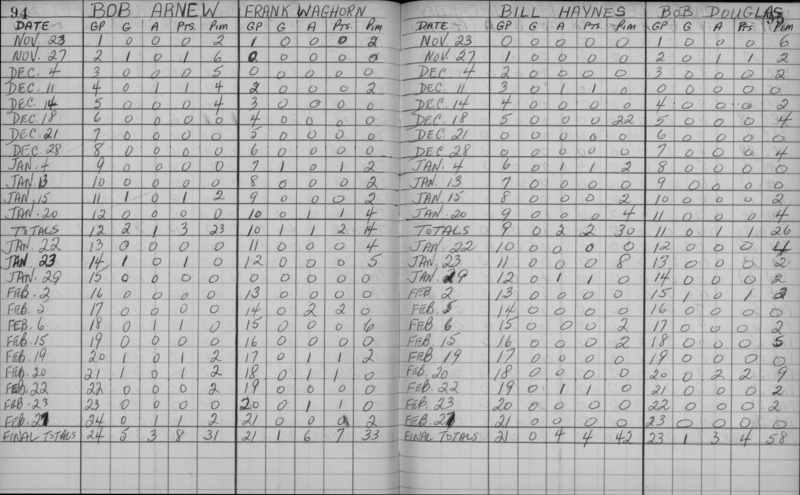 94
BOB ARNEW FRANK WAGHORN
DATE GP G A Pts. Pim GP G A Pts. Pim
NOV. 23 1 0 0 0 2 1 0 0 0 2
NOV. 27 2 1 0 1 6 2 0 0 0 0
DEC. 4 3 0 0 0 5 0 0 0 0 0
DEC. 11 4 0 1 1 4 2 0 0 0 2
DEC. 14 5 0 0 0 4 3 0 0 0 0
DEC. 18 6 0 0 0 0 4 0 0 0 0
DEC. 21 7 0 0 0 0 5 0 0 0 0
DEC. 28 8 0 0 0 0 6 0 0 0 0
JAN. 4 9 0 0 0 0 7 1 0 1 2
JAN. 13 10 0 0 0 0 8 0 0 0 2
JAN. 15 11 1 0 1 2 9 0 0 0 2
JAN. 20 12 0 0 0 0 10 0 1 1 4
TOTALS 12 2 1 3 23 10 1 1 2 14
JAN. 22 13 0 0 0 0 11 0 0 0 4
JAN. 23 14 1 0 1 0 12 0 0 0 5
JAN. 29 15 0 0 0 0 0 0 0 0 0
FEB. 2 16 0 0 0 0 13 0 0 0 0
FEB. 5 17 0 0 0 0 14 0 2 2 0
FEB. 6 18 0 1 1 0 15 0 0 0 6
FEB. 15 19 0 0 0 0 16 0 0 0 0
FEB. 19 20 1 0 1 2 17 0 1 1 2
FEB. 20 21 1 0 1 2 18 0 1 1 0
FEB. 22 22 0 0 0 2 19 0 0 0 0
FEB. 23 23 0 0 0 0 20 0 1 1 0
FEB. 27 24 0 1 1 2 21 0 0 0 2
FINAL TOTALS 24 5 3 8 31 21 1 6 7 33
BILL HAYNES BOB DOUGLAS
DATE GP G A Pts. Pim GP G A Pts. Pim
NOV. 23 0 0 0 0 0 1 0 0 0 6
NOV. 27 1 0 0 0 0 2 0 1 1 2
DEC. 4 2 0 0 0 0 3 0 0 0 2
DEC. 11 3 0 1 1 0 0 0 0 0 0
DEC. 14 4 0 0 0 0 4 0 0 0 2
DEC. 18 5 0 0 0 22 5 0 0 0 4
DEC. 21 0 0 0 0 0 6 0 0 0 0
DEC. 28 0 0 0 0 0 7 0 0 0 4
JAN. 4 6 0 1 1 2 8 0 0 0 0
JAN. 13 7 0 0 0 0 9 0 0 0 0
JAN. 15 8 0 0 0 2 10 0 0 0 2
JAN. 20 9 0 0 0 4 11 0 0 0 4
TOTALS 9 0 2 2 30 11 0 1 1 26
JAN. 22 10 0 0 0 0 12 0 0 0 4
JAN. 23 11 0 0 0 8 13 0 0 0 2
JAN. 29 12 0 1 1 0 14 0 0 0 2
FEB. 2 13 0 0 0 0 15 1 0 1 2
FEB. 5 14 0 0 0 0 16 0 0 0 0
FEB. 6 15 0 0 0 2 17 0 0 0 2
FEB. 15 16 0 0 0 2 18 0 0 0 5
FEB. 19 17 0 0 0 0 19 0 0 0 0
FEB. 20 18 0 0 0 0 20 0 2 2 9
FEB. 22 19 0 1 1 0 21 0 0 0 2
FEB. 23 20 0 0 0 0 22 0 0 0 2
FEB. 27 21 0 0 0 0 23 0 0 0 0
FINAL TOTALS 21 0 4 4 42 23 1 3 4 58